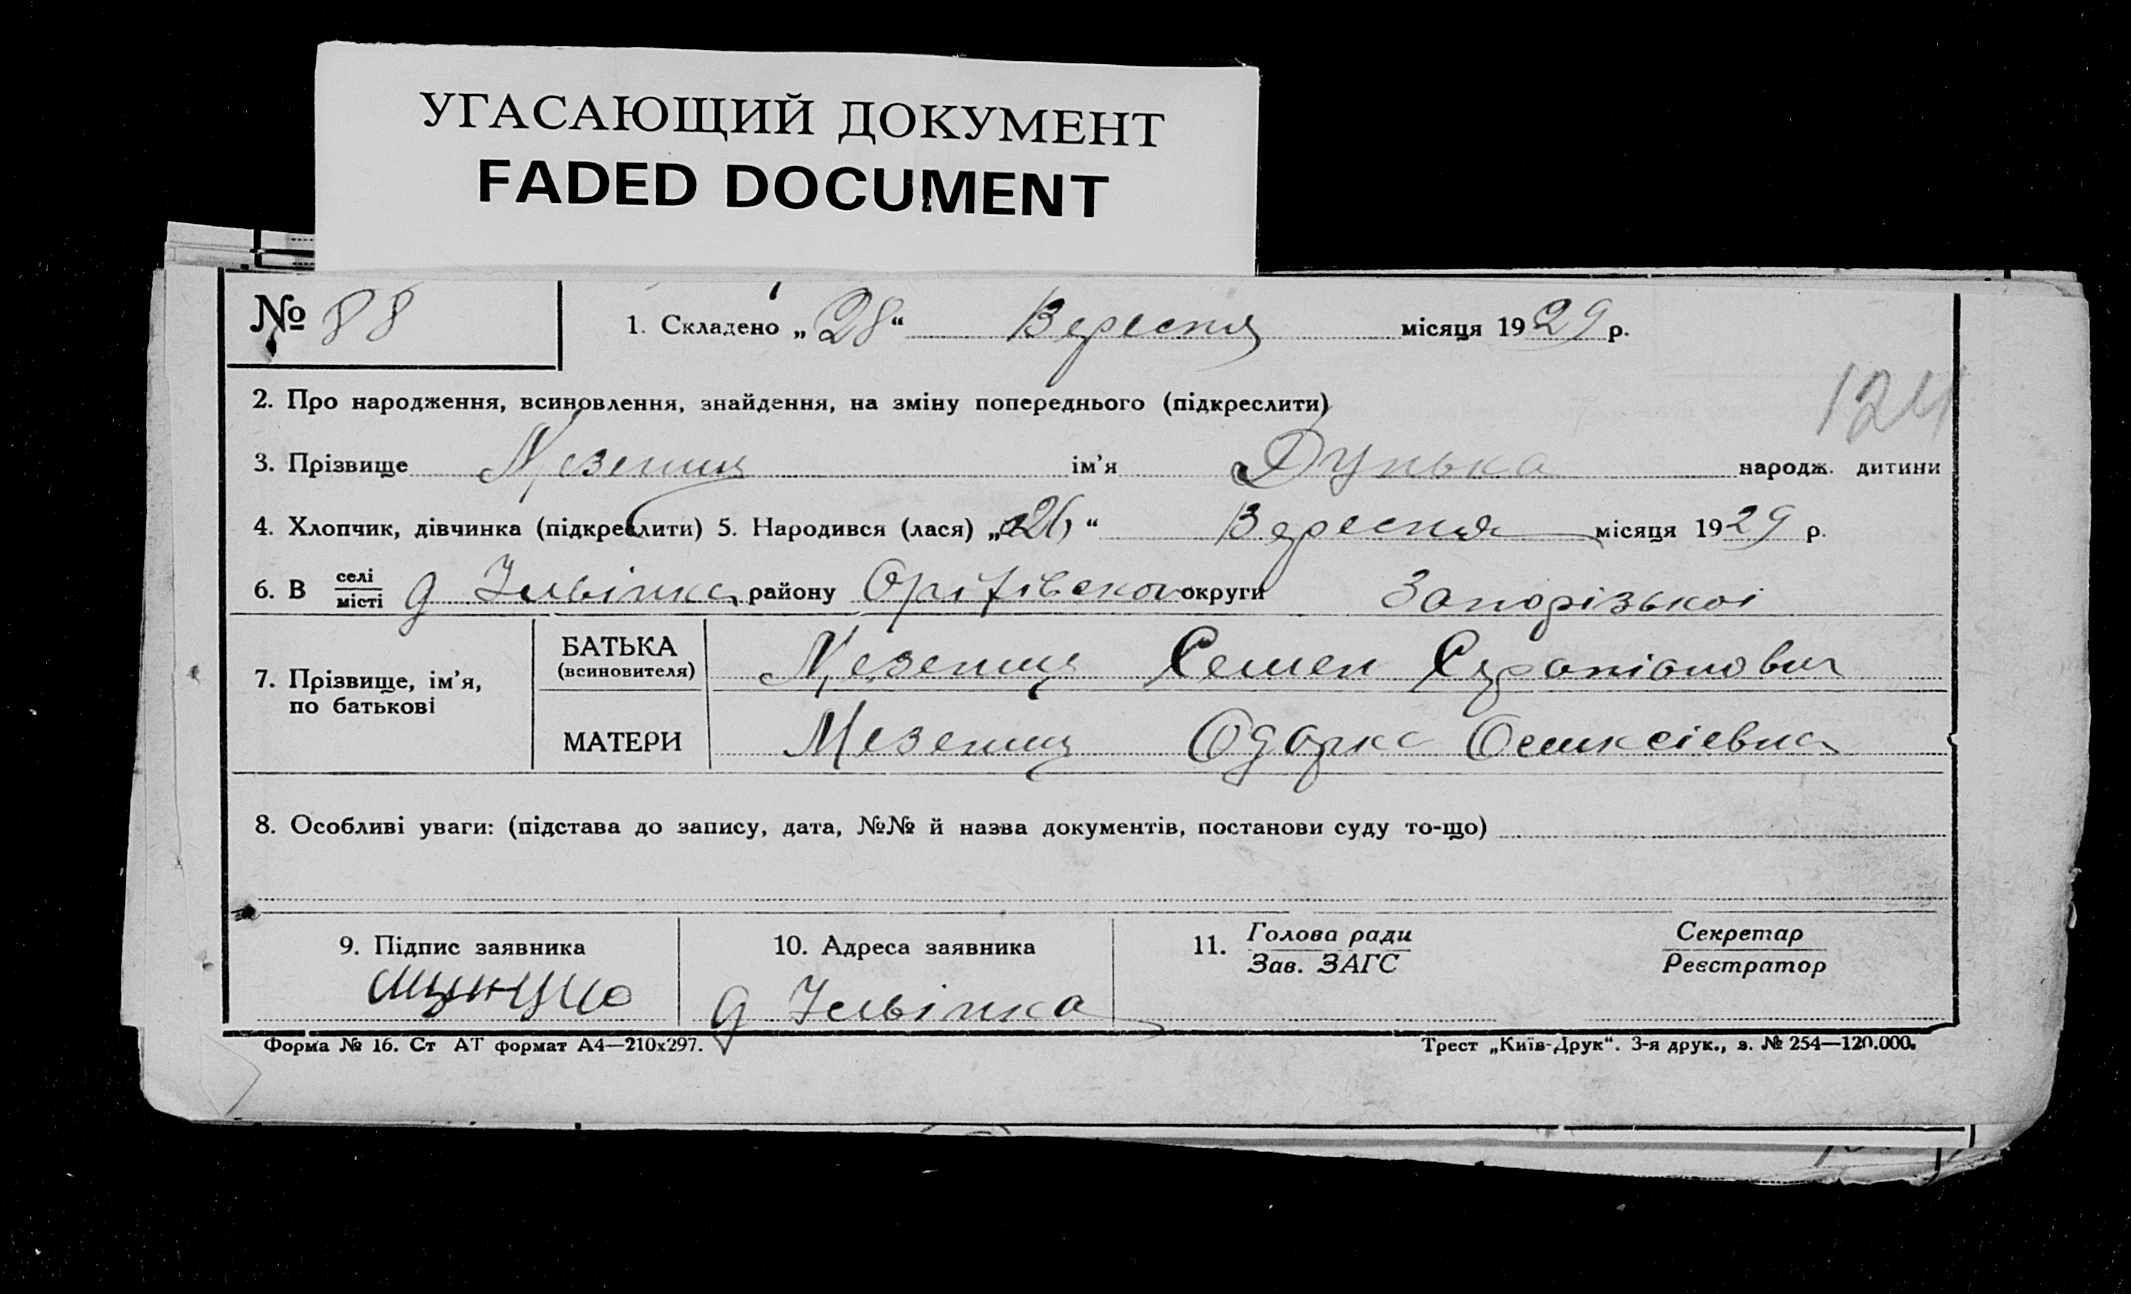 УГАСАЮЩИЙ ДОКУМЕНТ
FADED DOCUMENT
№ 88
1. Складено „28“ Вересня місяця 1929 р.
124
2. Про народження, всиновлення, знайдення, на зміну попереднього (підкреслити)
3. Прізвище Мезениц ім’я Дунька народж. дитини
4. Хлопчик, дівчинка (підкреслити) 5. Народився (лася) „26“ Вересня місяця 1929 р.
6. В селі місті району округи Запорізької
7. Прізвище, ім’я, по батькові
БАТЬКА (всиновителя) Мезениц Семен
МАТЕРИ Мезениц Одарка
8. Особливі уваги: (підстава до запису, дата, №№ й назва документів, постанови суду то-що)
9. Підпис заявника
10. Адреса заявника
11. Голова ради Зав. ЗАГС
Секретар Реєстратор
Форма № 16. Ст АТ формат А4—210х297.
Трест „Київ-Друк“. 3-я друк., з. № 254—120.000.